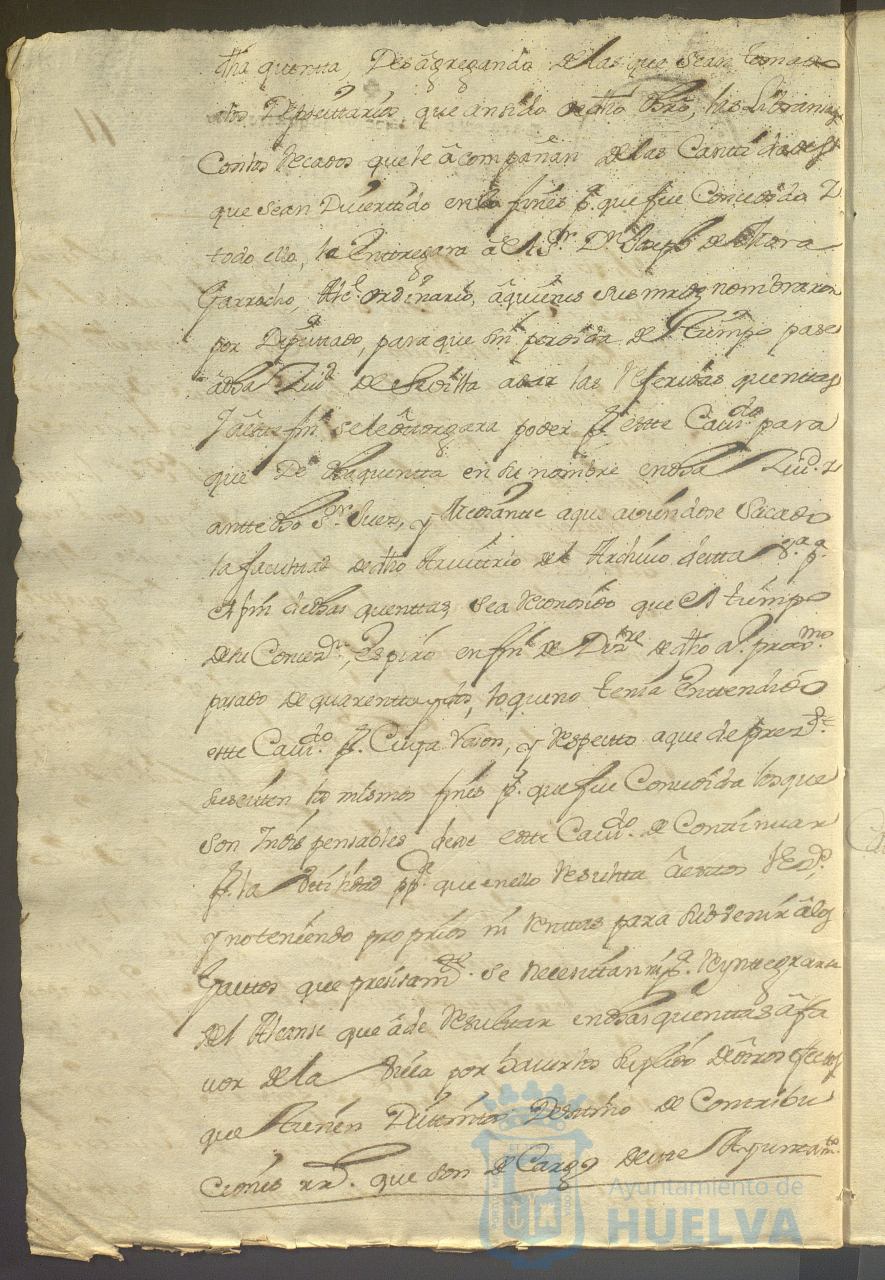 dha quentta, Desagregando de las que sean tomado
a los Depocittarios que an sido de dho Adrio, las Libranzas
Con los Recados que le acompañan de las Canttidades
que sean Divertido en los fines pa. que fue Concedida Y
todo ello, le Entregara a el Sr. Dn. Joseph de Mora
Garrocho, Alce. ordinario, a quienes sus mrdz nombraron
por Diputtado, para que sin perdida de tiempo pase
a dha Ziud. de Sevilla a dar las Referidas quenttas
Y a este fin se le ottorgara poder pr. estte Cavdo. para
que De dha quentta en su nombre en dha Ziud. y
antte dho Sr. Juez, y Mediante a que aviendose Sacado
la facultad de dho Arvittrio del Archivo de esta Va. pa.
el fin de dhas quenttas, sea Reconosido que el tiempo
de su Conceon., Espiro en fin de Dizre. de dho a. proxmo.
pasado de quarentta y dos, lo que no tenia Enttendido
estte Cavdo. pr. Cuya Razon, y Respecto a que de presste.
subsisten los mismos fines pa. que fue Concedida los que
son Indispensables deve estte Cavdo. de Conttinuar
pr. la Utilidad ppca. que en ello Resulta a esttos Vezos.,
y no teniendo proprios ni Renttas para subvenir a los
gasttos que presisamte. se necesitan ni pa. Reynttegrarse
del Alcanse que a de Resulttar en dhas quenttas a fa
vor de la Villa por haverlos suplido de otros efectos
que tienen Disttintto Desttino de Conttribu
ciones rrs. que son de Cargo de este Ayunttamto.
11
Ayuntamiento de
HUELVA